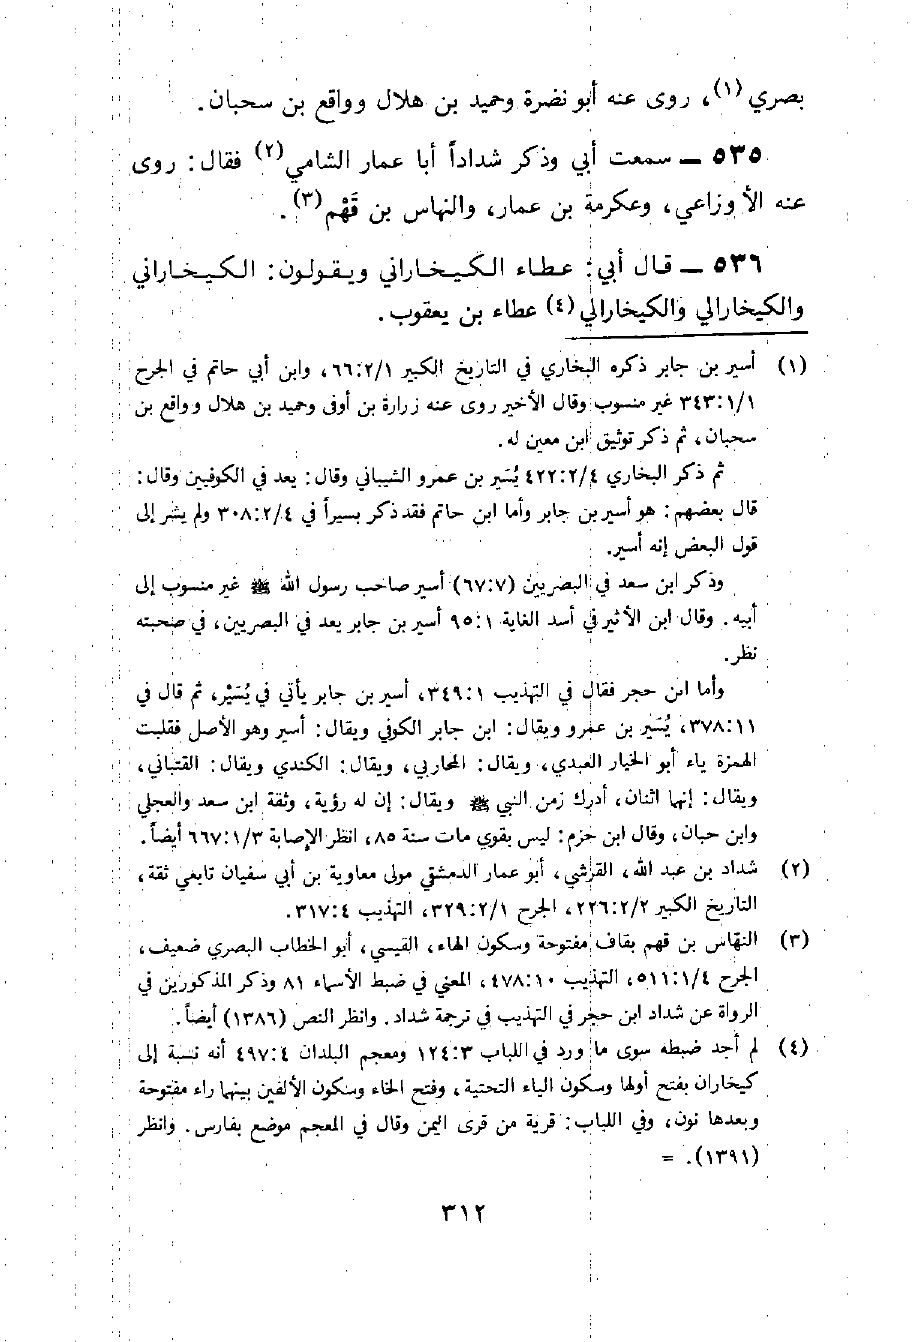 بصري (١)، روى عنه أبو نضرة وحميد بن هلال وواقع بن سحبان.
٥٣٥ ــ سمعت أبي وذكر شداداً أبا عمار الشامي (٢) فقال: روى
عنه الأوزاعي، وعكرمة بن عمار، والنهاس بن قَهْم (٣).
٥٣٦ ــ قال أبي: عطاء الكيخاراني ويقولون: الكيخاراني
والكيخارالي والكيخارالي (٤) عطاء بن يعقوب.
(١) أسير بن جابر ذكره البخاري في التاريخ الكبير ٦٦:٢/١، وابن أبي حاتم في الجرح
٣٤٣:١/١ غير منسوب وقال الأخير روى عنه زرارة بن أوفى وحميد بن هلال وواقع بن
سحبان، ثم ذكر توثيق ابن معين له.
ثم ذكر البخاري ٤٢٢:٢/٤ يُسَير بن عمرو الشيباني وقال: يعد في الكوفيين وقال:
قال بعضهم: هو أسير بن جابر وأما ابن حاتم فقد ذكر بسيراً في ٣٠٨:٢/٤ ولم يشر إلى
قول البعض إنه أسير.
وذكر ابن سعد في البصريين (٦٧:٧) أسير صاحب رسول الله ﷺ غير منسوب إلى
أبيه. وقال ابن الأثير في أسد الغابة ٩٥:١ أسير بن جابر يعد في البصريين، في صحبته
نظر.
وأما ابن حجر فقال في التهذيب ٣٤٩:١، أسير بن جابر يأتي في يُسَيْر، ثم قال في
٣٧٨:١١، يُسَير بن عمرو ويقال: ابن جابر الكوفي ويقال: أسير وهو الأصل فقلبت
الهمزة ياء أبو الخيار العبدي، ويقال: المحاربي، ويقال: الكندي ويقال: القتباني،
ويقال: إنها اثنان، أدرك زمن النبي ﷺ ويقال: إن له رؤية، وثقة ابن سعد والعجلي
وابن حبان، وقال ابن حزم: ليس بقوي مات سنة ٨٥، انظر الإصابة ٦٦٧:١/٣ أيضاً.
(٢) شداد بن عبد الله، القرشي، أبو عمار الدمشقي مولى معاوية بن أبي سفيان تابعي ثقة،
التاريخ الكبير ٢٢٦:٢/٢، الجرح ٣٢٩:٢/١، التهذيب ٣١٧:٤.
(٣) النهّاس بن قهم بقاف مفتوحة وسكون الهاء، القيسي، أبو الخطاب البصري ضعيف،
الجرح ٥١١:١/٤، التهذيب ٤٧٨:١٠، المعني في ضبط الأسماء ٨١ وذكر المذكورين في
الرواة عن شداد ابن حجر في التهذيب في ترجمة شداد. وانظر النص (١٣٨٦) أيضاً.
(٤) لم أجد ضبطه سوى ما ورد في اللباب ١٢٤:٣ ومعجم البلدان ٤٩٧:٤ أنه نسبة إلى
كيخاران بفتح أولها وسكون الياء التحتية، وفتح الخاء وسكون الألفين بينها راء مفتوحة
وبعدها نون، وفي اللباب: قرية من قرى اليمن وقال في المعجم موضع بفارس. وانظر
(١٣٩١). =
٣١٢